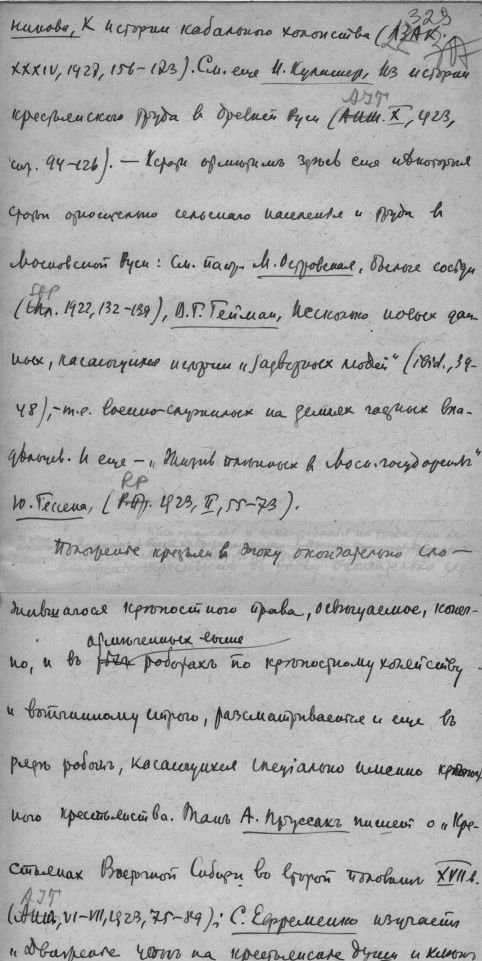 329
нинова, К истории кабального холопства (ЛЗАК.
XXXIV, 1927, 156-173). См. еще И. Кулишер, Из истории
крестьянского труда в древней Руси (АИТ. X, 1923,
стр. 94-126). — Кстати отметимъ здѣсь еще нѣкоторыя
статьи относительно сельскаго населенія и труда в
Московской Руси: См. напр. М. Островская, Былые сосѣди
(1922, 132-139), В. Г. Гейман, Несколько новых дан-
ных, касающихся истории „задворных людей“ (ibid., 39-
48), - т.е. военно-служилых на землях владѣльцев.
И еще - „Жизнь пленных в Моск. государстве“
Ю. Гессена, (РП. 1923, II, 55-73).
Положение крестьян в эпоху окончательно сло-
жившагося крѣпостного права, освѣщаемое, конеч-
но, и въ отмѣченных выше работахъ по крѣпостному хозяйству
и вотчинному строю, разсматривается и еще въ
рядѣ работъ, касающихся спеціально именно крѣпост-
ного крестьянства. Такъ А. Пруссакъ пишет о „Кре-
стьянах Восточной Сибири во второй половинѣ XVII в.
(АИТ, VI-VII, 1923, 75-89); С. Ефременко изучает
„Движение цѣнъ на крестьянские души